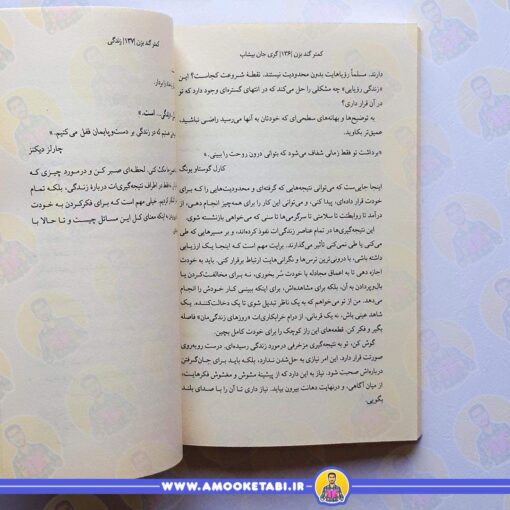 کمتر گند بزن |۱۳۶| گری جان بیشاپ
دارند. مسلماً رؤیاهایت بدون محدودیت نیستند. نقطهٔ شروعت کجاست؟ این
«زندگی رؤیایی» چه مشکلی را حل می‌کند که در انتهای گستره‌ای وجود دارد که تو
در آن قرار داری؟
به توضیح‌ها و بهانه‌های سطحی‌ای که خودتان به آنها می‌رسید راضی نباشید،
عمیق‌تر بکاوید.
«برداشت تو فقط زمانی شفاف می‌شود که بتوانی درون روحت را ببینی.»
کارل گوستاو یونگ
اینجا جایی‌ست که می‌توانی نتیجه‌هایی که گرفته‌ای و محدودیت‌هایی را که برای
خودت قرار داده‌ای، پیدا کنی، و می‌توانی این کار را برای همه‌چیز انجام دهی، از
درآمد تا روابطت تا سلامتی تا سرگرمی‌ها تا سنی که می‌خواهی بازنشسته شوی.
این نتیجه‌گیری‌ها در تمام عناصر زندگی‌ات نفوذ کرده‌اند، و بر مسیرهایی که طی
می‌کنی یا طی نمی‌کنی تأثیر می‌گذارند. برایت مهم است که اینجا یک ارزیابی
داشته باشی، با درونی‌ترین ترس‌ها و نگرانی‌هایت ارتباط برقرار کنی. باید به خودت
اجازه دهی تا به اعماق مجادله با خودت سُر بخوری، نه برای مخالفت‌کردن یا
بال‌وپردادن به آن، بلکه برای مشاهده‌اش، برای اینکه ببینی کار خودش را انجام
می‌دهد. من از تو می‌خواهم که به یک ناظر تبدیل شوی تا یک دخالت‌کننده، یک
شاهد عینی باش، نه یک قربانی. از درام خرابکاری‌ات «روزهای زندگی‌مان» فاصله
بگیر و فکر کن. قطعه‌های این راز کوچک را برای خودت کامل بچین.
گوش کن، تو به نتیجه‌گیری مزخرفی درمورد زندگی رسیده‌ای. درست روبه‌روی
صورتت قرار دارد. این امر نیازی به حل‌شدن ندارد، بلکه باید برای جان‌گرفتن
درباره‌اش صحبت شود. نیاز به این دارد که از پیشینهٔ مشوش و مغشوش فکرهایت،
از میان آگاهی، و درنهایت دهانت بیرون بیاید. نیاز داری تا آن را با صدای بلند
بگویی.
کمتر گند بزن |۱۳۷| زندگی
زندگی... است.»
در زندگی بر دست‌وپایمان قفل می‌کنیم.»
چارلز دیکنز
مکث کنی. لحظه‌ای صبر کن و درمورد چیزی که
در اطراف نتیجه‌گیری‌ات دربارهٔ زندگی، بلکه تمام
کردیم. خیلی مهم است که برای فکرکردن به خودت
اینکه معنای کل این مسائل چیست و تا حالا با
WWW.AMOOKETABI.IR